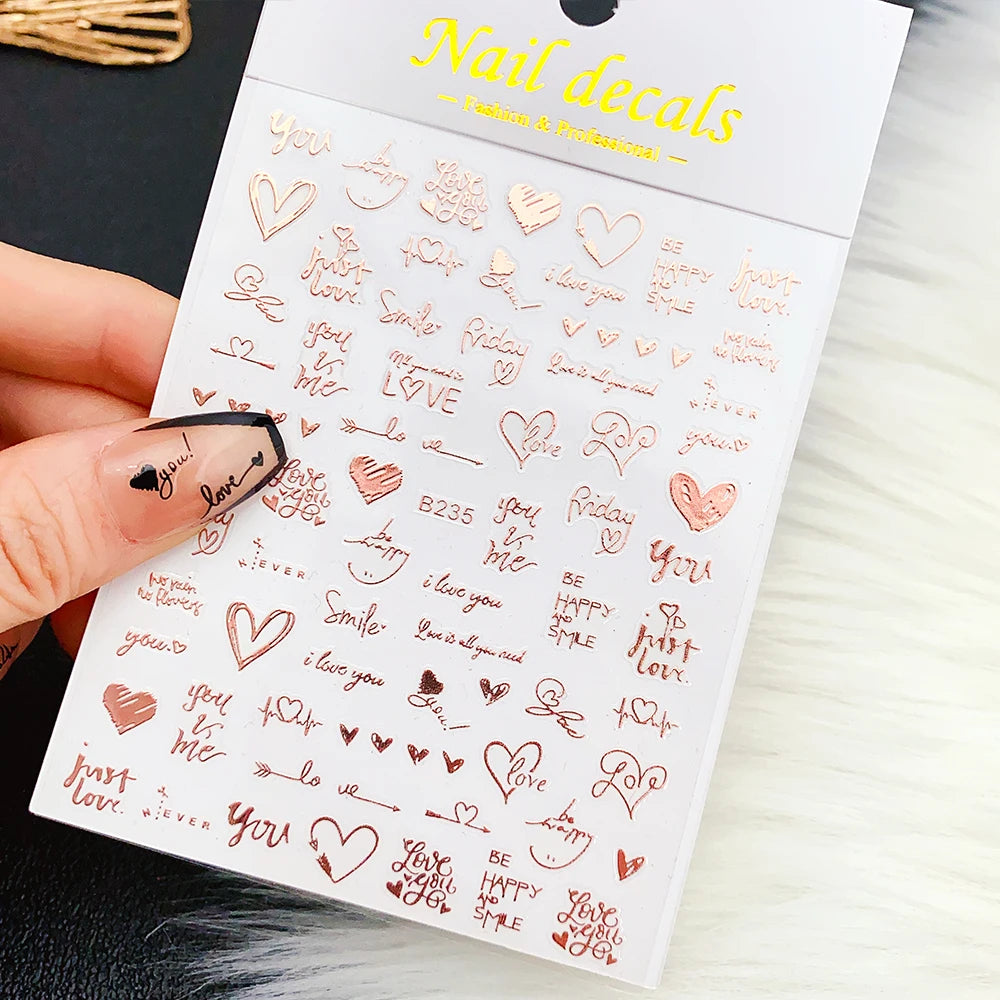 Nail decals
— Fashion & Professional —
you
be
happy
Love
you
BE
HAPPY
AND
SMILE
just
love.
just
love.
you!
i love you
Smile
friday
no rain
no flowers
you
&
me
All you need is
LOVE
Love is all you need
EVER
lo ve
love
Love
you.
you!
love
Love
you
B235
you
&
me
friday
you
EVER
be
happy
no rain
no flowers
i love you
BE
HAPPY
AND
SMILE
Smile
Love is all you need
just
love.
you.
i love you
you!
you
&
me
just
love.
lo ve
love
Love
EVER
you
be
happy
Love
you
BE
HAPPY
AND
SMILE
Love
you